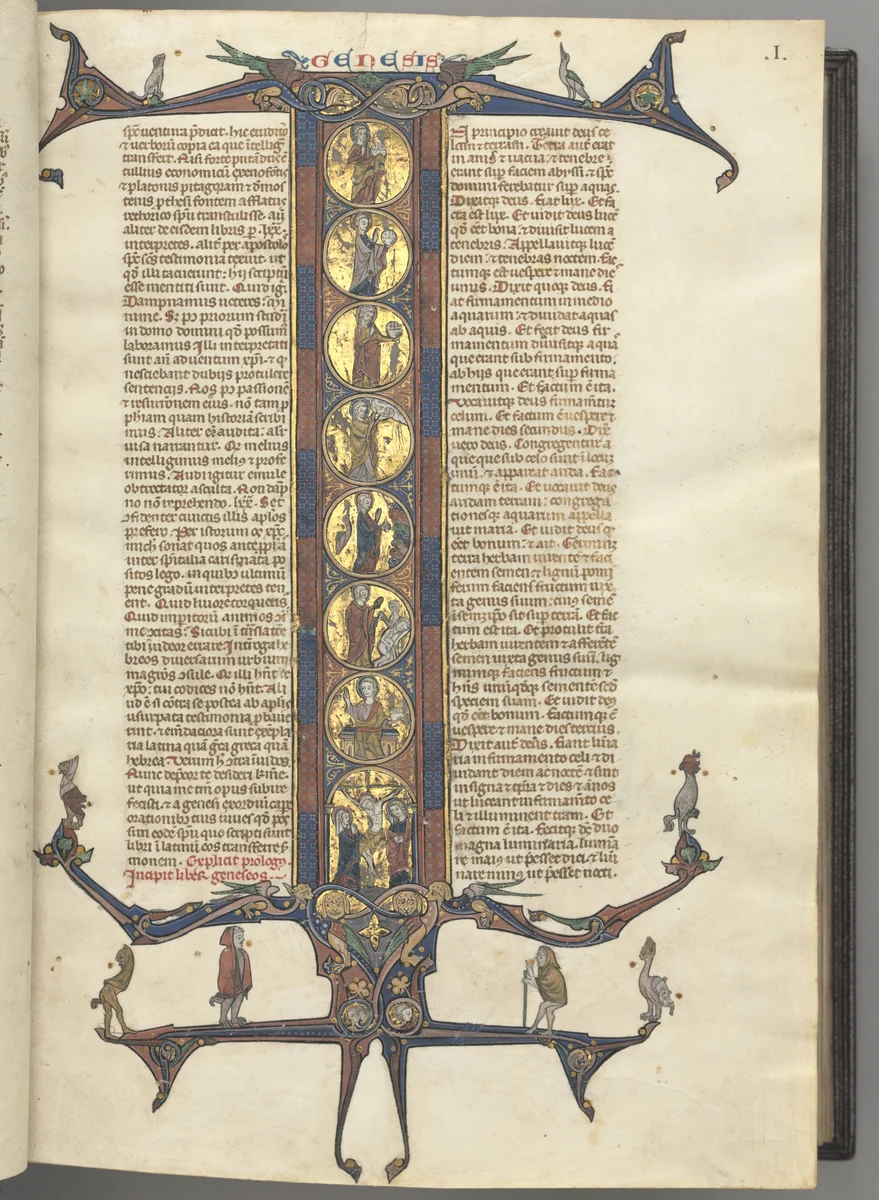 GENESIS
.I.
sps uentura p̃dicit. hic eruditio
& uerborũ copia ea que ĩtelligit
transfert. Nisi forte putãdus ẽ
tullius economicũ xenofõtis
& platonis pitagoram & demos
tenis p̃thesifontem afflatus
rethorico spũ transtulisse. aut
aliter de eisdem libris p̃ .lxx.
interpretes. alit̃ per apostolos
sps scs testimonia texuit. ut
qd̃ illi tacuerunt: hij scriptũ
esse mentiti sunt. Quid igr̃
Dampnamus ueteres:
nime. Sꝫ pꝰ priorum studia
in domo domini qd̃ possumꝰ
laboramus. Illi interpretati
sunt añ aduentum xp̃i. & qd̃
nesciebant dubijs protulere
sentencijs. Nos pꝰ passionẽ
& resurr̃onem eius. nõ tam p̃
phetiam quam historiã scribi
mus. Aliter eñ audita: alit̃
uisa narrantur. Qd̃ melius
intelligimus melius & profe
rimus. Audi igitur emule
obtrectator asculta. Non dãp
no nõ reprehendo .lxx. Set
ↄfidenter cunctis illis aplos
prefero. Per istorum os xpc
michi sonat quos ante ꝓphãs
inter spiritalia carismata po
sitos lego. in quibꝰ ultimũ
pene gradũ interpretes ten
ent. Quid liuore torqueris.
Quid inperitorũ animos ↄtra
me ↄcitas: Sicubi ĩ trãslatõe
tibi uideor errare Interroga he
breos diuersarum urbium
magr̃os ↄsule. Qd̃ illi hñt de
xp̃o: tui codices nõ hñt. Ali
ud ẽ si cõtra se postea ab aplis
usurpata testimonia p̃bauer̃
rint. & emẽdatiora sunt exẽpla
ria latina quã greca. greca quã
hebrea. Verum hec ↄtra inuidos.
Nunc dep̃cor te desideri kr̃me.
ut quia me tm̃ opus subire
fecisti. & a genesi exordiũ cape
orationibꝰ tuis iuues. qd̃ pos
sim eodẽ spũ quo scripti sunt
libri ĩ latinũ eos transferre s̃
monem. Explicit prologꝰ.
Incipit liber geneseos.
N principio creauit deus ce
lum & terram. Terra aut̃ erat
inanis & uacua: & tenebre
erant sup faciem abyssi. & sps
domini ferebatur sup aquas.
Dixitque deus. Fiat lux. Et fa
cta est lux. Et uidit deus lucẽ
qd̃ eẽt bona: & diuisit lucem a
tenebris. Appellauitque lucẽ
diem: & tenebras noctem. Fac
tumque est uespere & mane die
unus. Dixit quoque deus. Fi
at firmamentum in medio
aquarum: & diuidat aquas
ab aquis. Et fecit deus fir
mamentum diuisitque aquas
que erant sub firmamento.
ab hijs que erant sup firma
mentum. Et factum ẽ ita.
Vocauitque deus firmamẽtũ
celum. Et factum ẽ uespere &
mane dies secundus. Dixit
uero deus. Congregentur a
que que sub celo sunt ĩ locũ
unũ: & appareat arida. Fac
tumque ẽ ita. Et uocauit deus
aridam terram: congrega
tionesque aquarum appella
uit maria. Et uidit deus qd̃
eẽt bonum: & ait. Germinet
terra herbam uirentẽ & faci
entem semen: & lignũ pomi
ferum faciens fructum iux
ta genus suum: cuiꝰ semẽ
ĩ semetip̃o sit sup terrã. Et fac
tum est ita. Et protulit t̃ra
herbam uirentem & afferẽtẽ
semen iuxta genus suũ. lig
numque faciens fructum &
hñs unũqd̃que sementẽ scdm̃
speciem suam. Et uidit deꝰ
qd̃ eẽt bonum. Factumque ẽ
uespere & mane dies tercius.
Dixit aut̃ deus. Fiant lumĩa
ria in firmamento celi & di
uidant diem ac noctẽ: & sint
in signa & tp̃ra & dies & ãnos
ut luceant in firmam̃to ce
li & illuminent terram. Et
factum ẽ ita. Fecitque ds̃ duo
magna luminaria. lumĩa
re maiꝰ ut p̃esset diei: & lum̃
nare minꝰ ut p̃esset nocti.